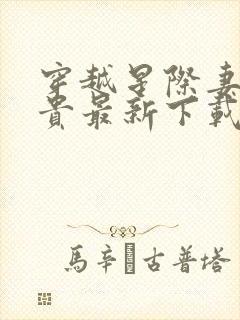 穿越星際妻
貴最新下載
馬辛 古普塔